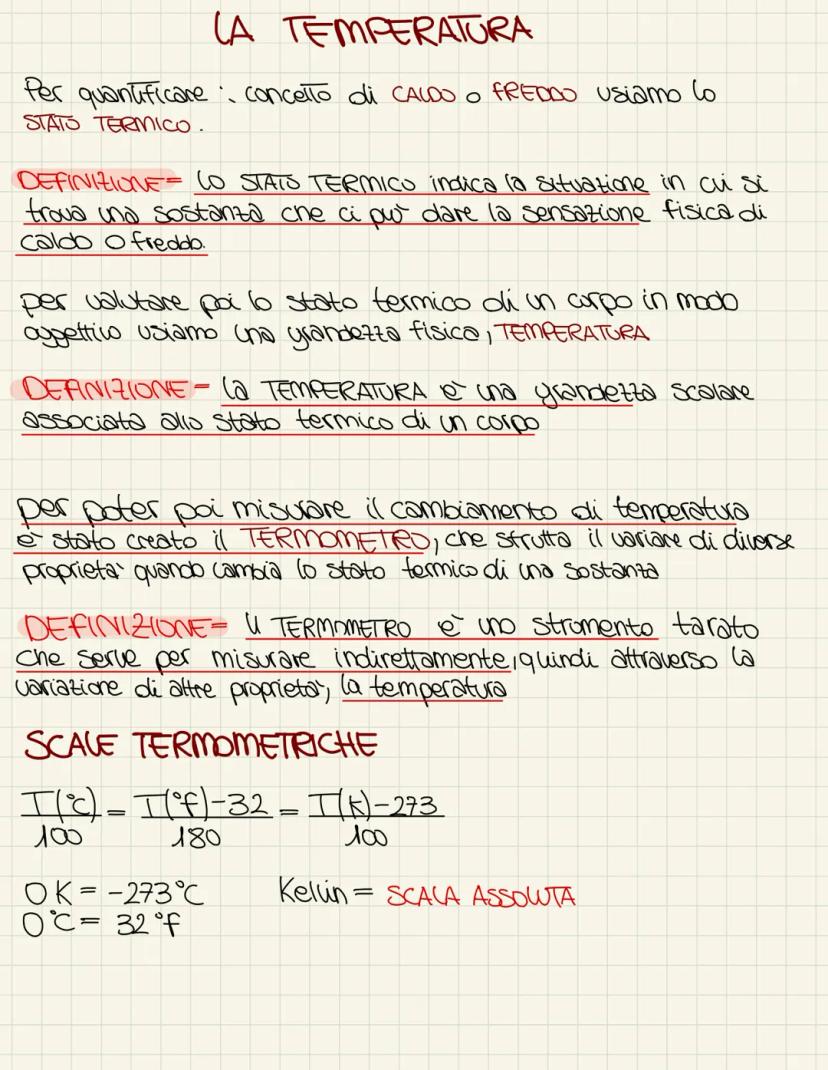 LA TEMPERATURA
Per quantificare il concetto di CALDO o FREDDO usiamo lo
STATO TERMICO.
DEFINIZIONE= lo STATO TERMICO indica la situazione in cui si
trova una sostanza che ci può dare la sensazione fisica di
caldo o freddo.
per valutare poi lo stato termico di un corpo in modo
oggettivo usiamo una grandezza fisica, TEMPERATURA
DEFINIZIONE- la TEMPERATURA è una grandezza scalare
associata allo stato termico di un corpo
per poter poi misurare il cambiamento di temperatura
è stato creato il TERMOMETRO, che sfrutta il variare di diverse
proprietà quando cambia lo stato termico di una sostanza
DEFINIZIONE= il TERMOMETRO è uno strumento tarato
che serve per misurare indirettamente, quindi attraverso la
variazione di altre proprietà, la temperatura
SCALE TERMOMETRICHE
T(°C) = T(°F)-32 = T(K)-273
100 180 100
0 K = -273°C Kelvin = SCALA ASSOLUTA
0°C = 32 °F